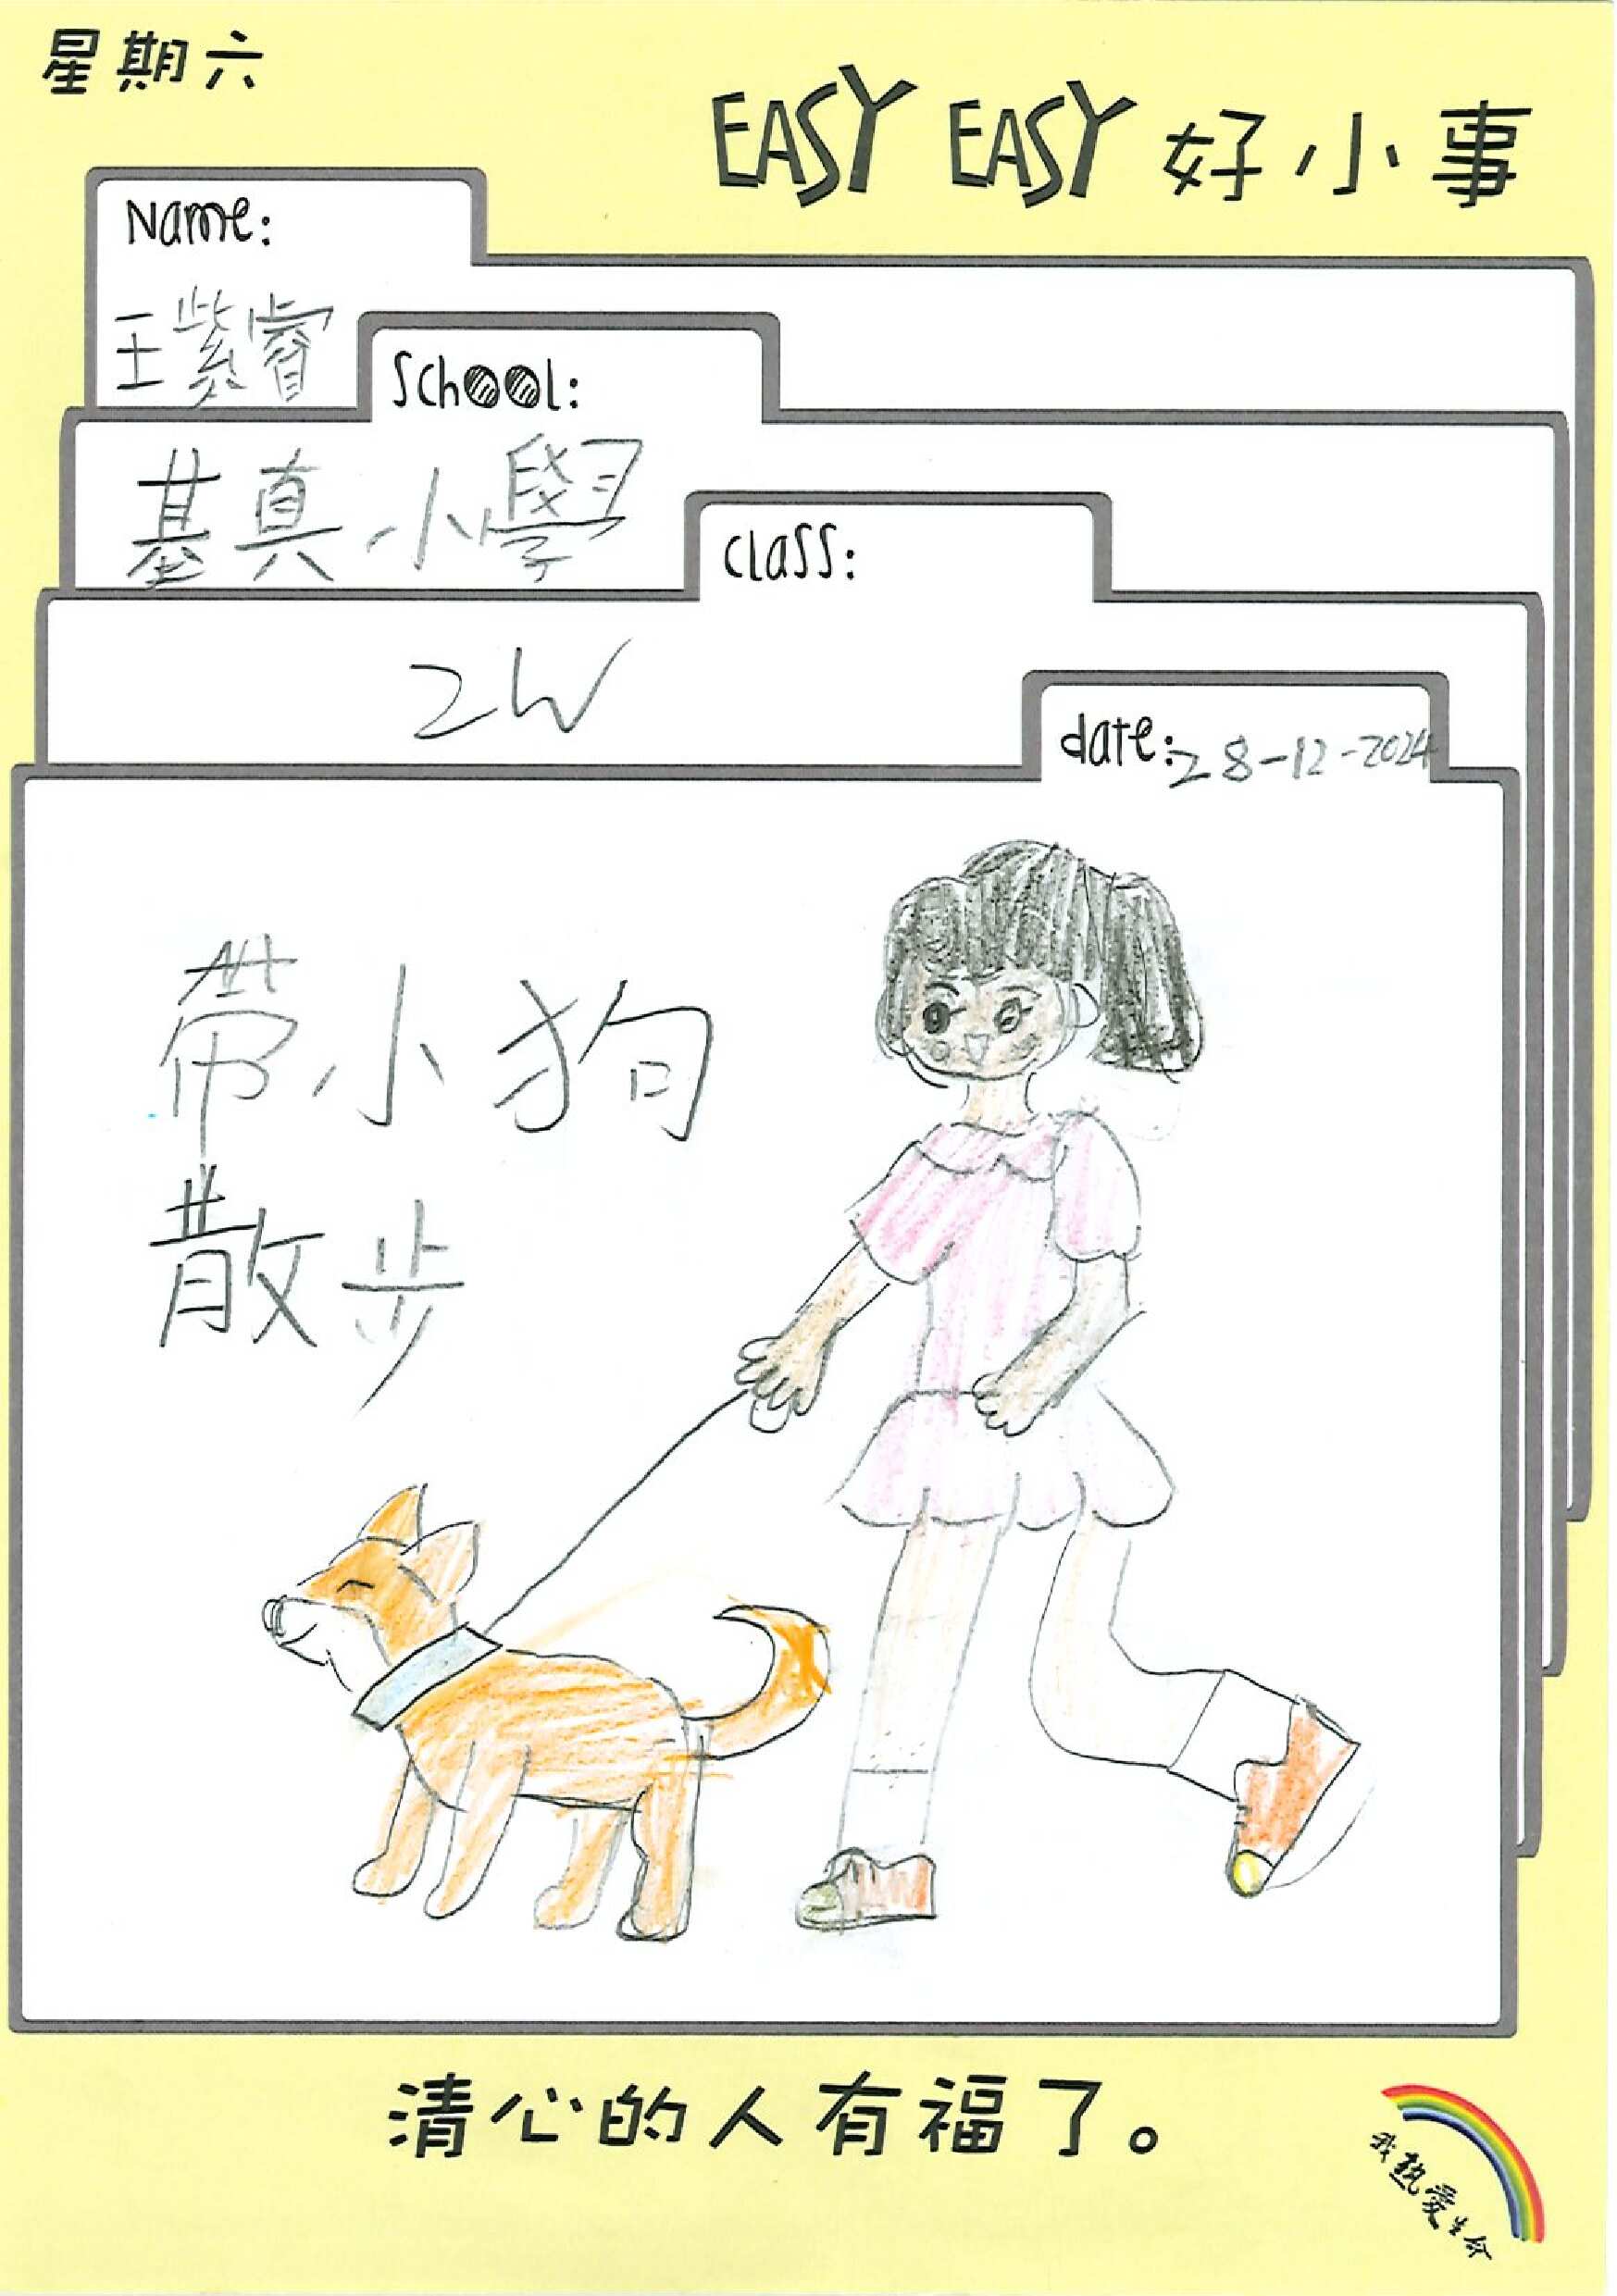 星期六
EASY EASY 好小事
Name:
王紫睿
School:
基真小學
Class:
2W
date: 28-12-2024
帶小狗
散步
清心的人有福了。
我熱愛生命